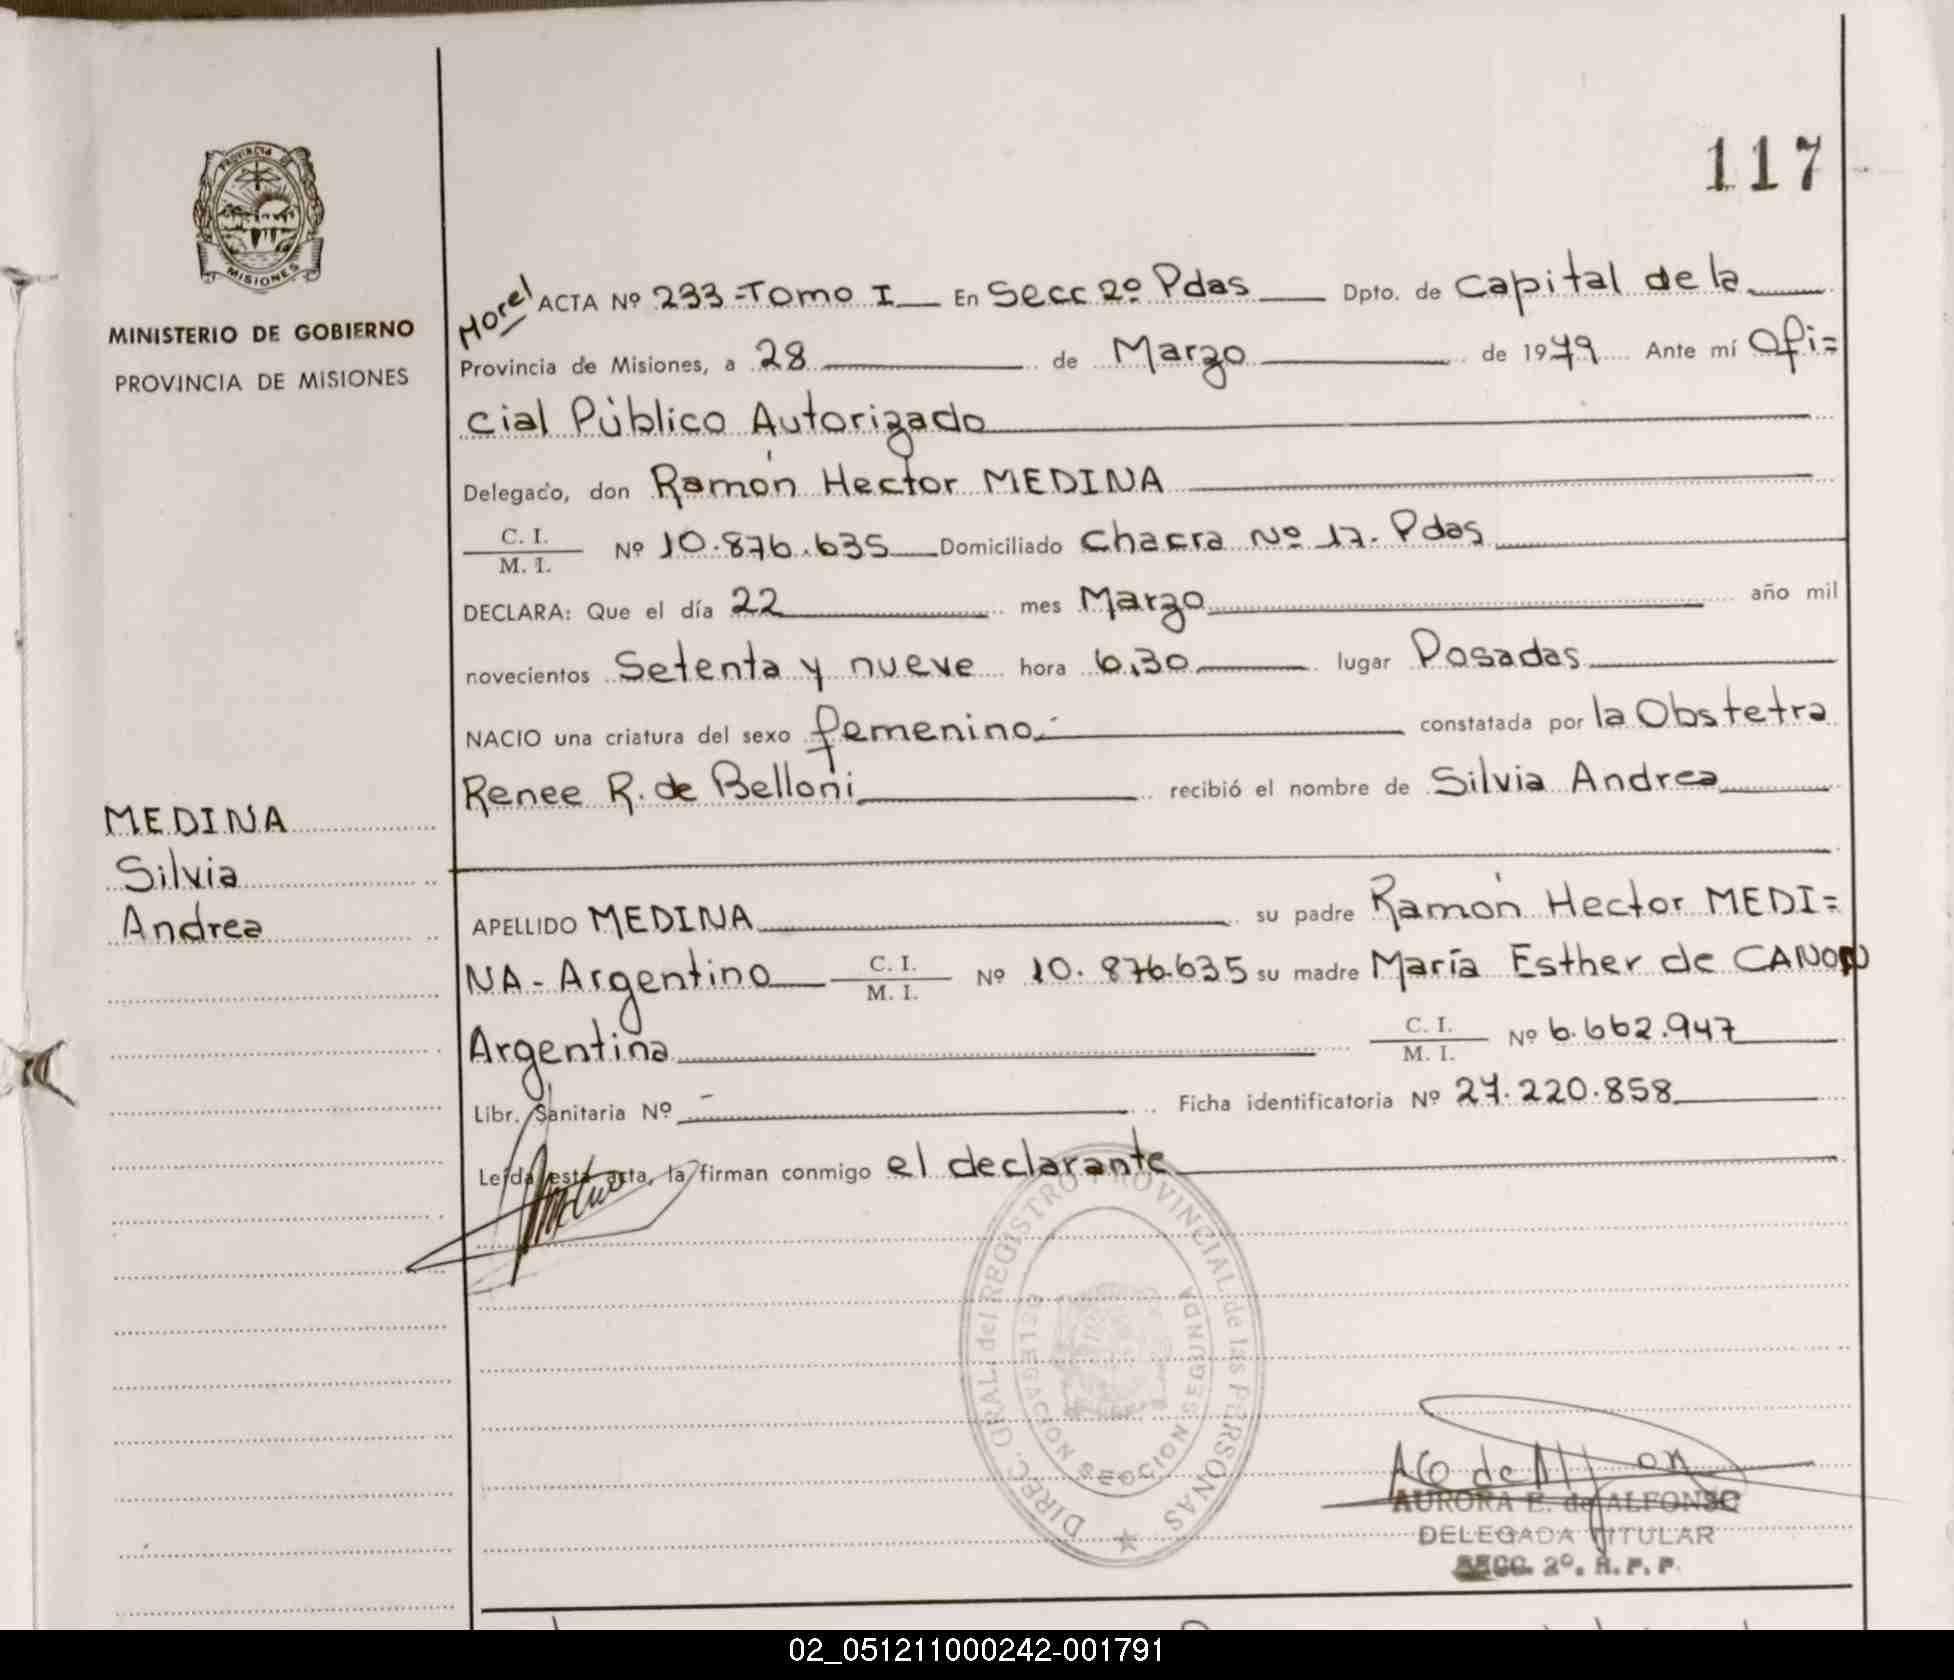 117
PROVINCIA DE
MISIONES
MINISTERIO DE GOBIERNO
PROVINCIA DE MISIONES
MEDINA
Silvia
Andrea
Morel ACTA Nº 233-Tomo I En Secc 2º Pdas Dpto. de Capital de la
Provincia de Misiones, a 28 de Marzo de 1979 Ante mí Ofi=
cial Público Autorizado
Delegado, don Ramón Hector MEDINA
C. I.
M. I. Nº 10.876.635 Domiciliado Chacra Nº 17. Pdas
DECLARA: Que el día 22 mes Marzo año mil
novecientos Setenta y nueve hora 6,30 lugar Posadas
NACIO una criatura del sexo femenino.- constatada por la Obstetra
Renee R. de Belloni recibió el nombre de Silvia Andrea
APELLIDO MEDINA su padre Ramón Hector MEDI=
NA - Argentino C. I.
M. I. Nº 10.876.635 su madre María Esther de CANON
Argentina C. I.
M. I. Nº 6.662.947
Libr. Sanitaria Nº - Ficha identificatoria Nº 27.220.858
Leída esta acta, la firman conmigo el declarante
DIREC. GRAL. del REGISTRO PROVINCIAL de las PERSONAS
DELEGACION SECCION SEGUNDA
AURORA E. de ALFONSO
DELEGADA TITULAR
SECC. 2º. R. P. P.
02_051211000242-001791